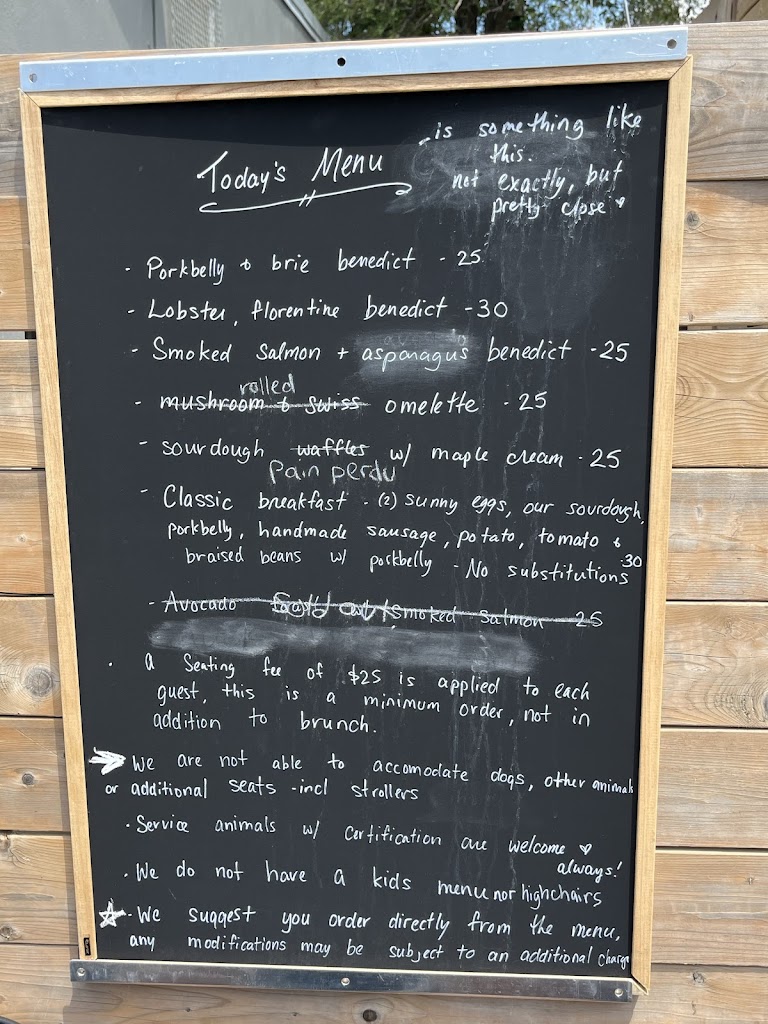 Today's Menu
is something like
this.
not exactly, but
pretty close
- Porkbelly & brie benedict - 25
- Lobster, florentine benedict - 30
- Smoked Salmon + asparagus benedict - 25
rolled
- mushroom & swiss omelette - 25
- sourdough waffles w/ maple cream - 25
Pain perdu
- Classic breakfast - (2) sunny eggs, our sourdough,
porkbelly, handmade sausage, potato, tomato &
braised beans w/ porkbelly - No substitutions 30
- Avocado Smoked Salmon 25
. a Seating fee of $25 is applied to each
guest, this is a minimum order, not in
addition to brunch.
→ We are not able to accomodate dogs, other animals
or additional seats - incl strollers
. Service animals w/ certification are welcome ♡
always!
. We do not have a kids menu nor highchairs
☆ - We suggest you order directly from the menu,
any modifications may be subject to an additional charge